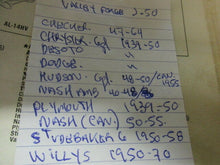 AL-14HV
VALLEY FORGE J-50
CHECKER 47-64
CHRYSLER 6cyl 1939-50
DESOTO "
DODGE
HUDSON 6cyl. 48-50/CAN. 1955
NASH AMB
PLYMOUTH 1939-50
NASH (CAN) 50-55.
STUDEBAKER 6 1950-58
WILLYS 1950-70